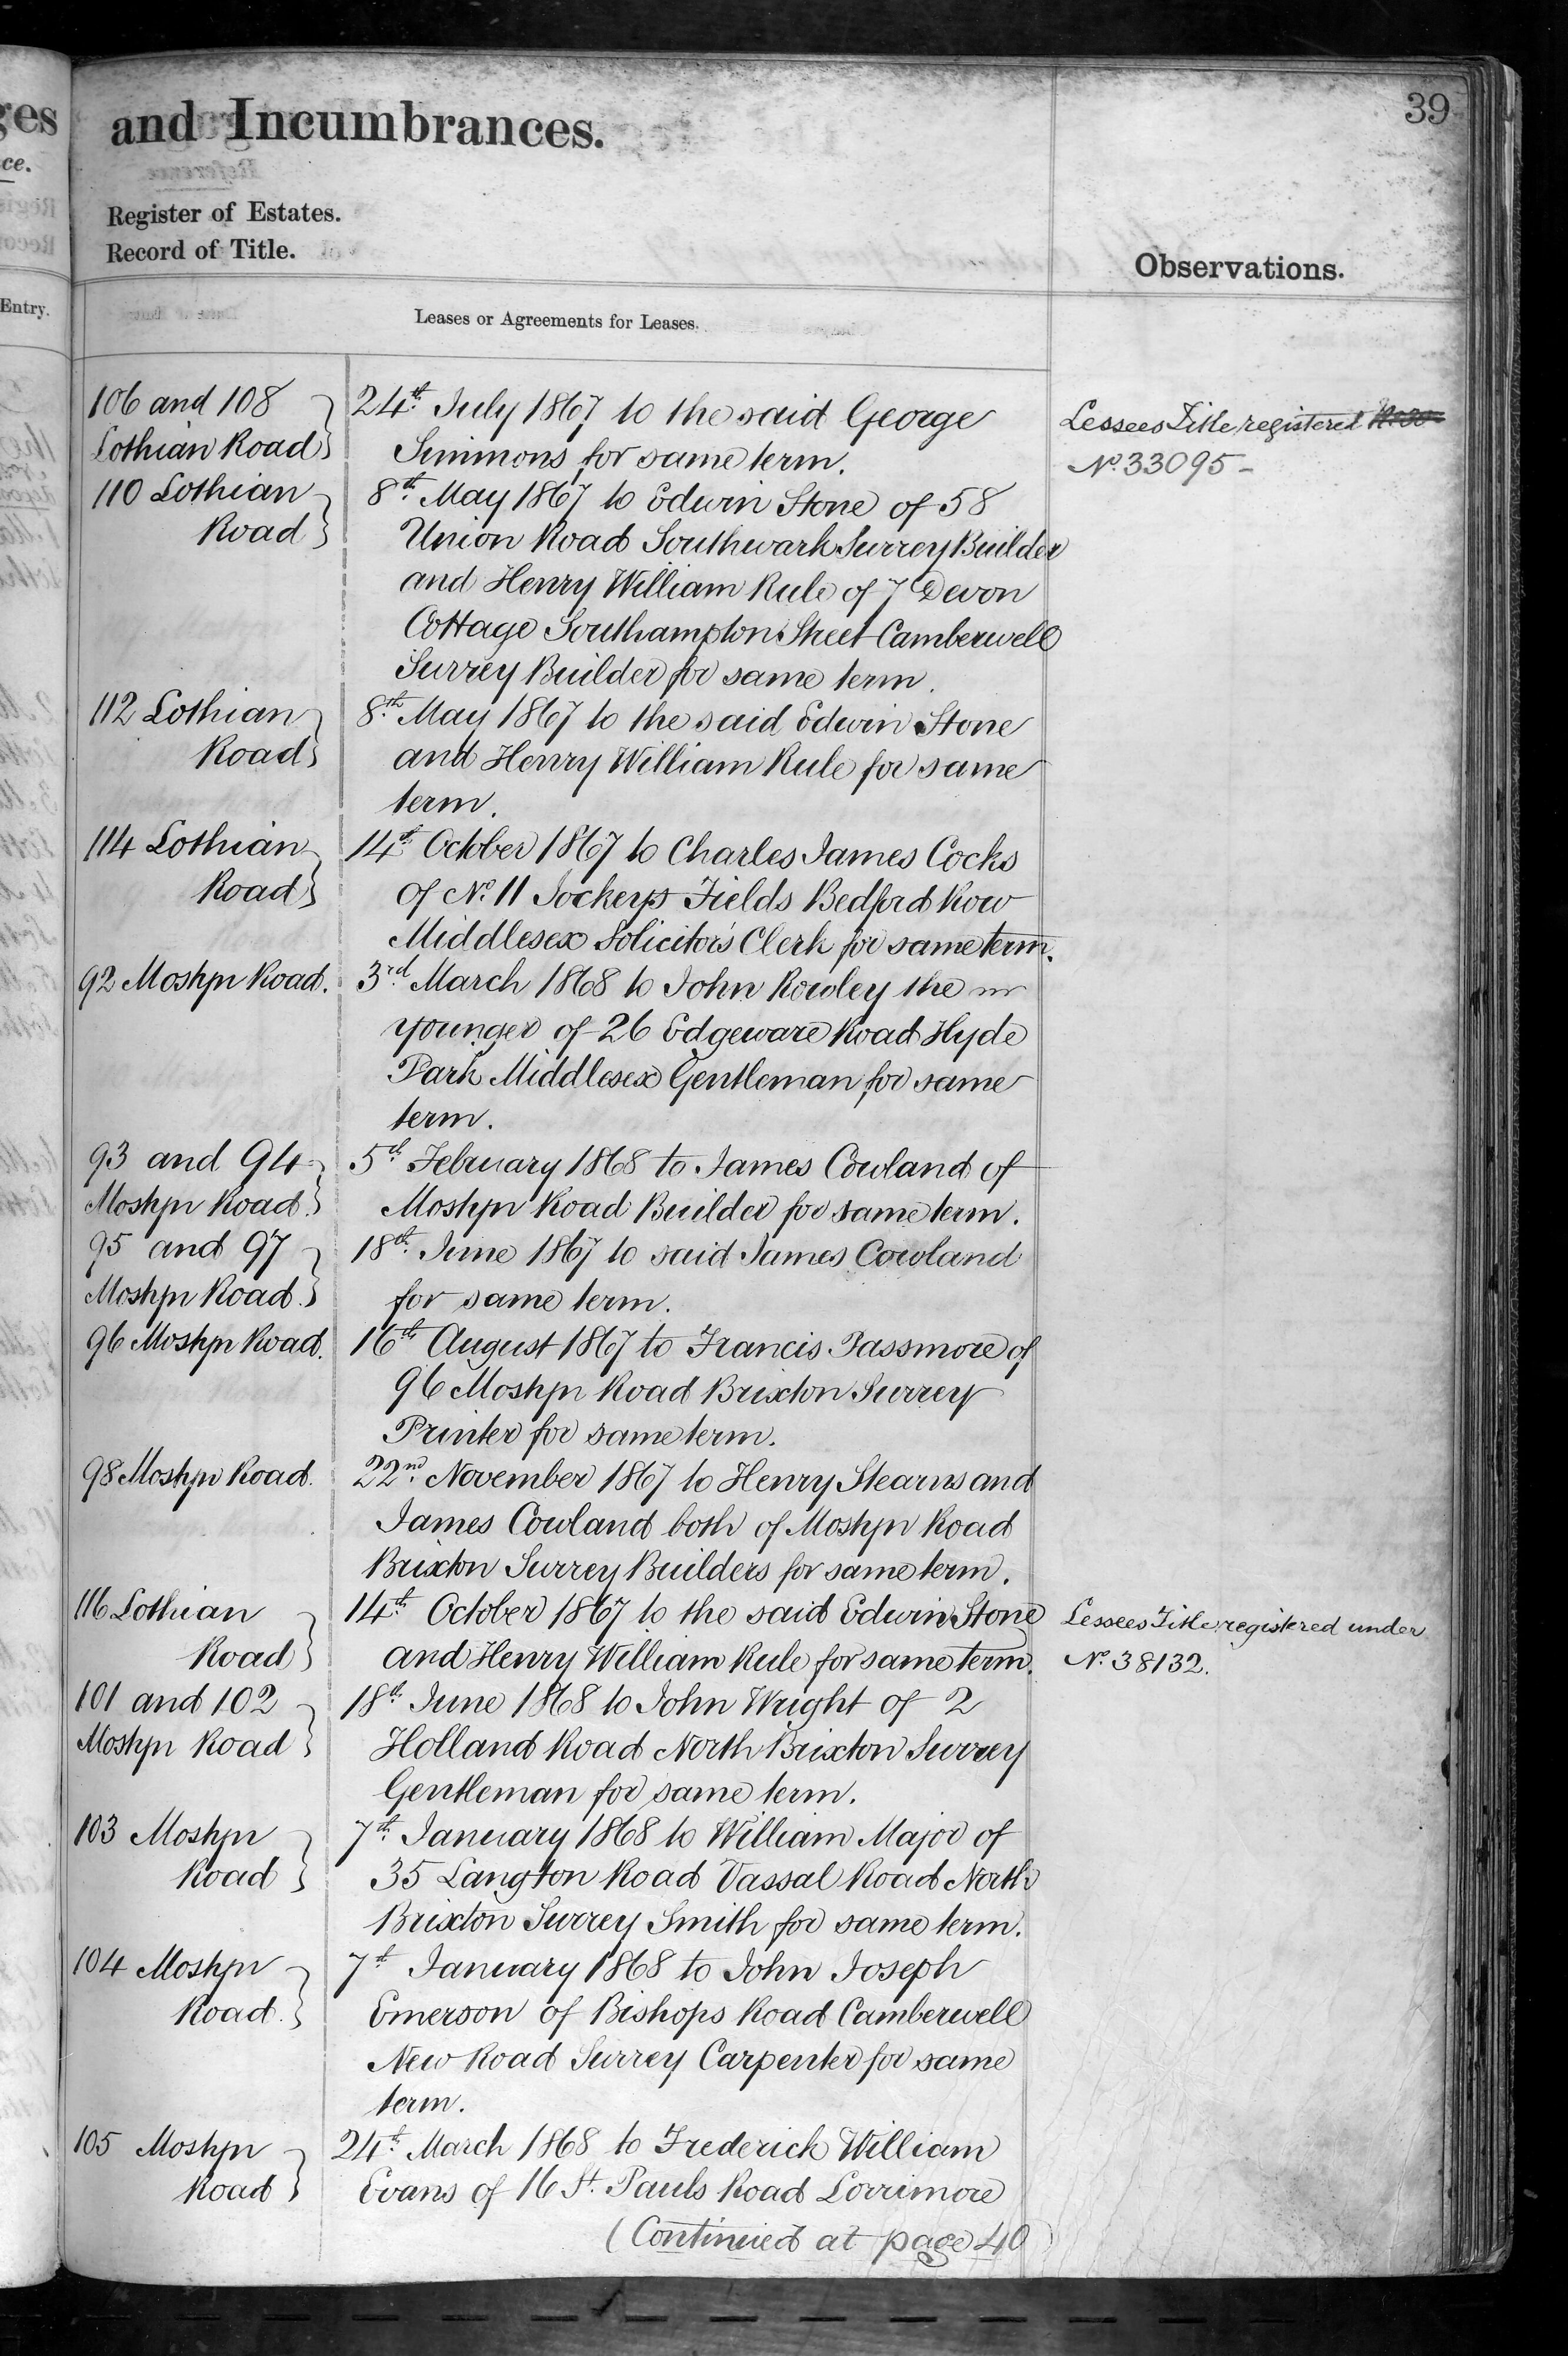 39
and Incumbrances.
Register of Estates.
Record of Title.
Observations.
Entry.
Leases or Agreements for Leases.
106 and 108 24th July 1867 to the said George
Lothian Road Simmons for same term.
Lessees Title registered
No. 33095 -
110 Lothian 8th May 1867 to Edwin Stone of 58
Road Union Road Southwark Surrey Builder
and Henry William Rule of 7 Devon
Cottage Southampton Street Camberwell
Surrey Builder for same term.
112 Lothian 8th May 1867 to the said Edwin Stone
Road and Henry William Rule for same
term.
114 Lothian 14th October 1867 to Charles James Cocks
Road of No. 11 Jockeys Fields Bedford Row
Middlesex Solicitor's Clerk for same term.
92 Mostyn Road. 3rd March 1868 to John Rowley the
younger of 26 Edgeware Road Hyde
Park Middlesex Gentleman for same
term.
93 and 94 5th February 1868 to James Cowland of
Mostyn Road. Mostyn Road Builder for same term.
95 and 97 18th June 1867 to said James Cowland
Mostyn Road. for same term.
96 Mostyn Road. 16th August 1867 to Francis Passmore of
96 Mostyn Road Brixton Surrey
Printer for same term.
98 Mostyn Road. 22nd November 1867 to Henry Stearns and
James Cowland both of Mostyn Road
Brixton Surrey Builders for same term.
116 Lothian 14th October 1867 to the said Edwin Stone
Road and Henry William Rule for same term.
Lessees Title registered under
No. 38132.
101 and 102 18th June 1868 to John Wright of 2
Mostyn Road Holland Road North Brixton Surrey
Gentleman for same term.
103 Mostyn 7th January 1868 to William Major of
Road 35 Langton Road Vassal Road North
Brixton Surrey Smith for same term.
104 Mostyn 7th January 1868 to John Joseph
Road. Emerson of Bishops Road Camberwell
New Road Surrey Carpenter for same
term.
105 Mostyn 24th March 1868 to Frederick William
Road Evans of 16 St. Pauls Road Lorrimore
(Continued at page 40)